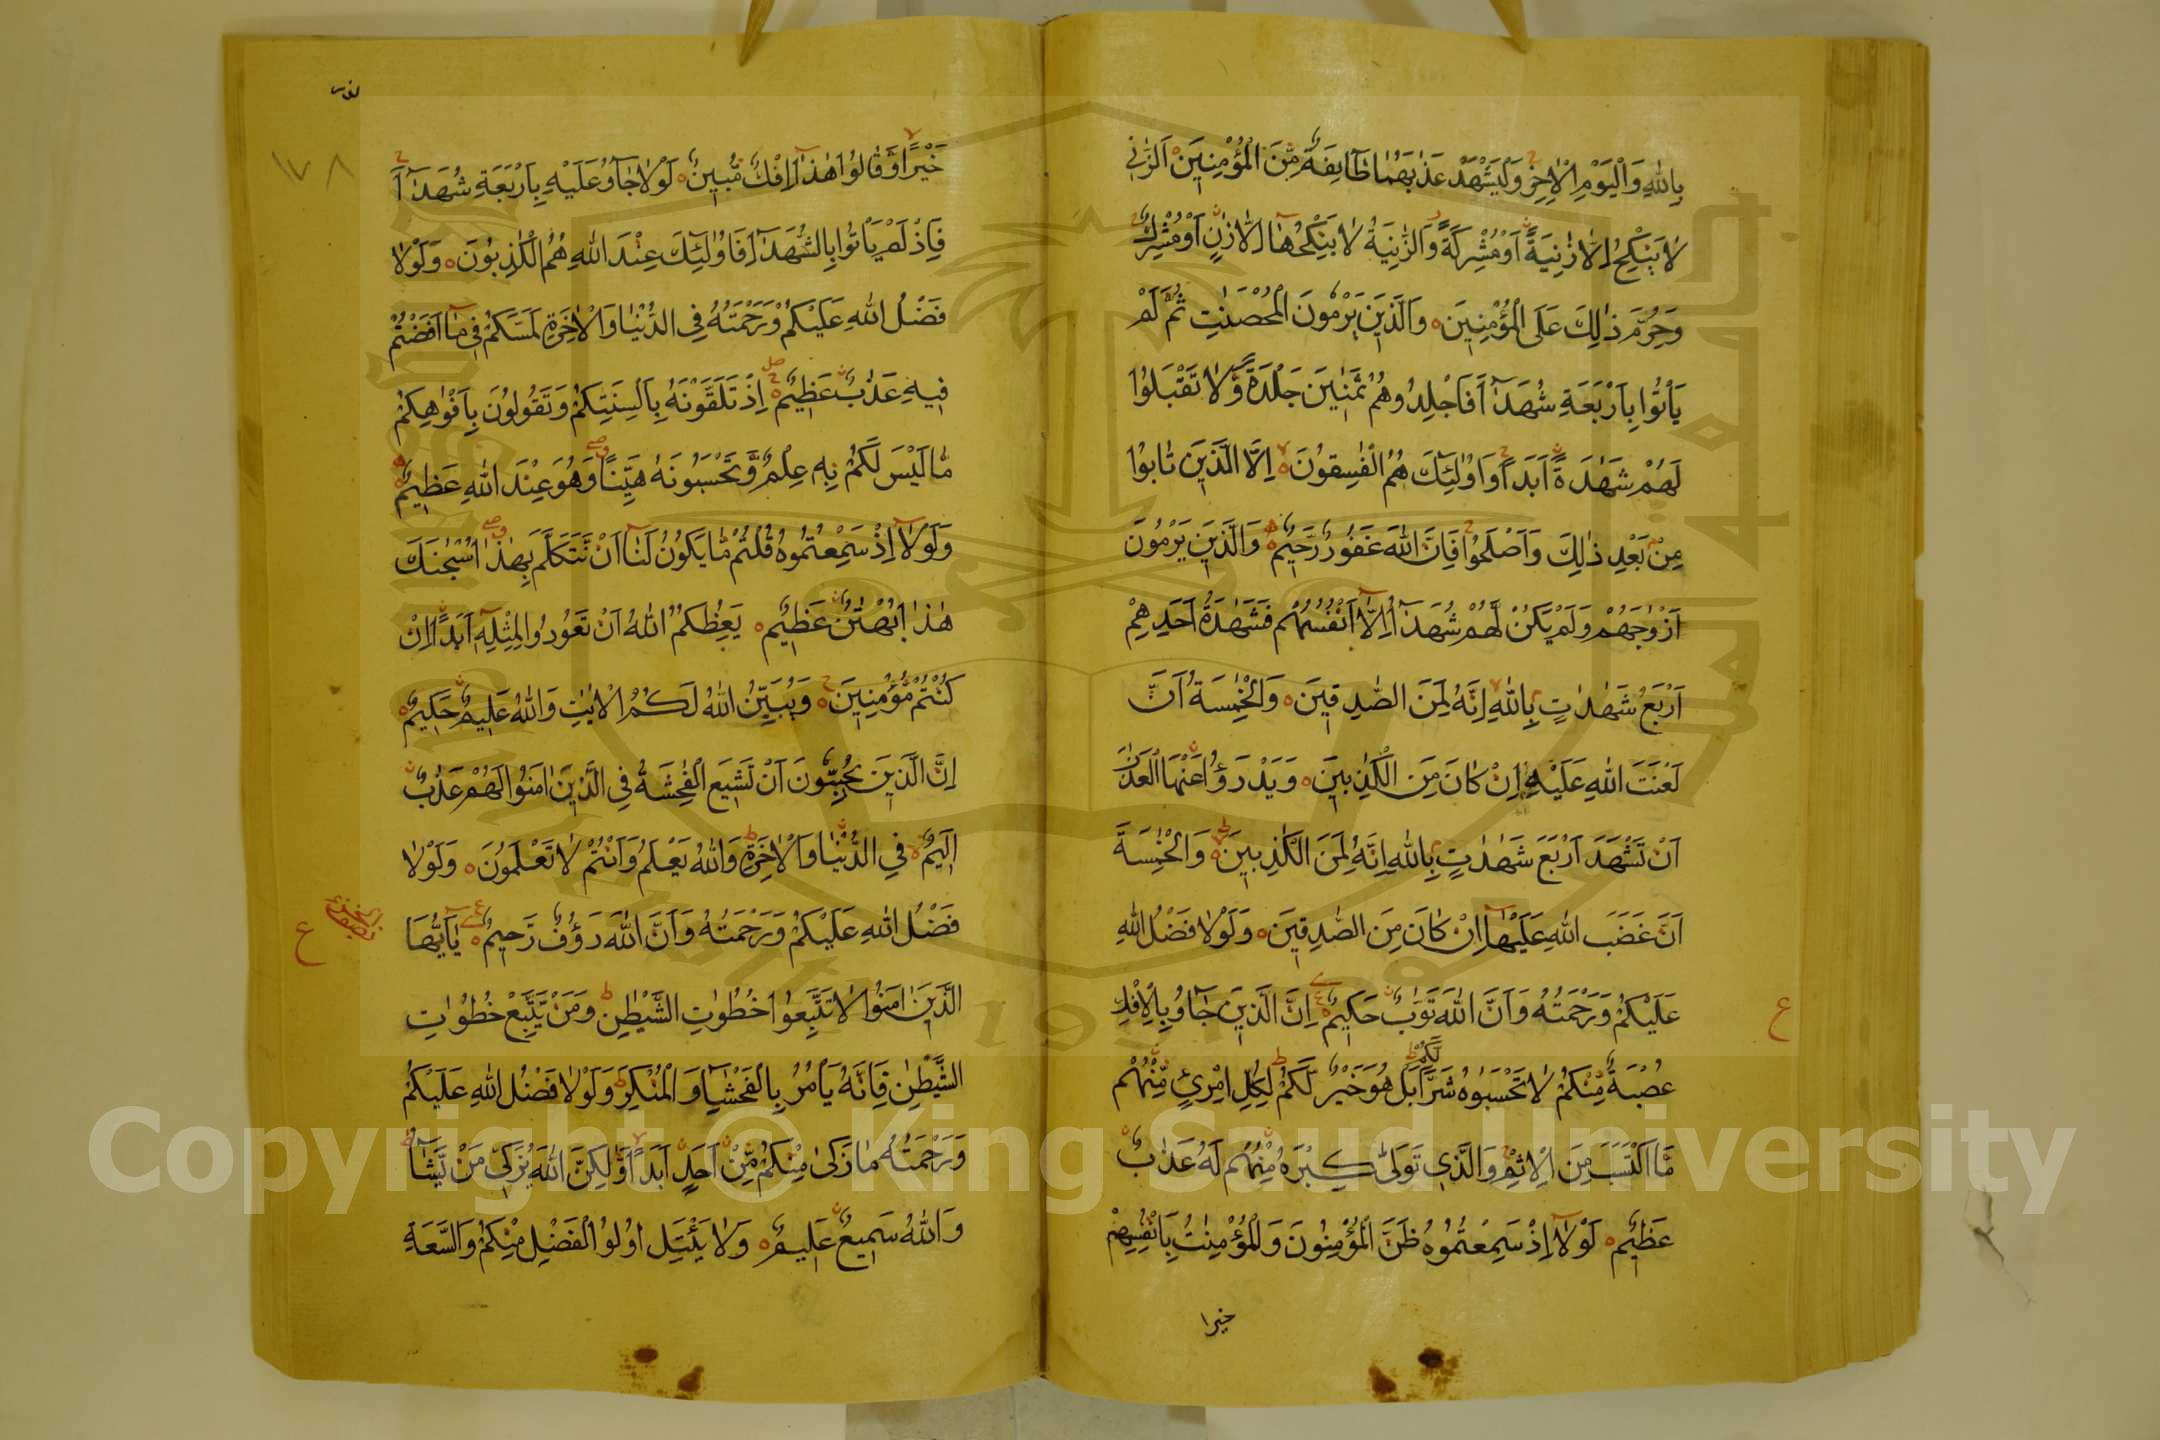 بِاللّٰهِ وَالْيَوْمِ الْاٰخِرِ وَلْيَشْهَدْ عَذَابَهُمَا طَآئِفَةٌ مِّنَ الْمُؤْمِنِيْنَ اَلزَّانِيْ
لَا يَنْكِحُ اِلَّا زَانِيَةً اَوْ مُشْرِكَةً وَّالزَّانِيَةُ لَا يَنْكِحُهَآ اِلَّا زَانٍ اَوْ مُشْرِكٌ
وَحُرِّمَ ذٰلِكَ عَلَى الْمُؤْمِنِيْنَ وَالَّذِيْنَ يَرْمُوْنَ الْمُحْصَنٰتِ ثُمَّ لَمْ
يَاْتُوْا بِاَرْبَعَةِ شُهَدَآءَ فَاجْلِدُوْهُمْ ثَمٰنِيْنَ جَلْدَةً وَّلَا تَقْبَلُوْا
لَهُمْ شَهَادَةً اَبَدًا وَاُولٰٓئِكَ هُمُ الْفٰسِقُوْنَ اِلَّا الَّذِيْنَ تَابُوْا
مِنْ بَعْدِ ذٰلِكَ وَاَصْلَحُوْا فَاِنَّ اللّٰهَ غَفُوْرٌ رَّحِيْمٌ وَالَّذِيْنَ يَرْمُوْنَ
اَزْوَاجَهُمْ وَلَمْ يَكُنْ لَّهُمْ شُهَدَآءُ اِلَّآ اَنْفُسُهُمْ فَشَهَادَةُ اَحَدِهِمْ
اَرْبَعُ شَهٰدٰتٍ بِاللّٰهِ اِنَّهُ لَمِنَ الصّٰدِقِيْنَ وَالْخَامِسَةُ اَنَّ
لَعْنَتَ اللّٰهِ عَلَيْهِ اِنْ كَانَ مِنَ الْكٰذِبِيْنَ وَيَدْرَؤُا عَنْهَا الْعَذَابَ
اَنْ تَشْهَدَ اَرْبَعَ شَهٰدٰتٍ بِاللّٰهِ اِنَّهُ لَمِنَ الْكٰذِبِيْنَ وَالْخَامِسَةَ
اَنَّ غَضَبَ اللّٰهِ عَلَيْهَآ اِنْ كَانَ مِنَ الصّٰدِقِيْنَ وَلَوْلَا فَضْلُ اللّٰهِ
عَلَيْكُمْ وَرَحْمَتُهُ وَاَنَّ اللّٰهَ تَوَّابٌ حَكِيْمٌ اِنَّ الَّذِيْنَ جَآءُوْ بِالْاِفْكِ
عُصْبَةٌ مِّنْكُمْ لَا تَحْسَبُوْهُ شَرًّا لَّكُمْ بَلْ هُوَ خَيْرٌ لَّكُمْ لِكُلِّ امْرِئٍ مِّنْهُمْ
مَّا اكْتَسَبَ مِنَ الْاِثْمِ وَالَّذِيْ تَوَلّٰى كِبْرَهُ مِنْهُمْ لَهُ عَذَابٌ
عَظِيْمٌ لَوْلَآ اِذْ سَمِعْتُمُوْهُ ظَنَّ الْمُؤْمِنُوْنَ وَالْمُؤْمِنٰتُ بِاَنْفُسِهِمْ
خيرا
ع
نور
١٧٨
خَيْرًا وَّقَالُوْا هٰذَآ اِفْكٌ مُّبِيْنٌ لَوْلَا جَآءُوْ عَلَيْهِ بِاَرْبَعَةِ شُهَدَآءَ
فَاِذْ لَمْ يَاْتُوْا بِالشُّهَدَآءِ فَاُولٰٓئِكَ عِنْدَ اللّٰهِ هُمُ الْكٰذِبُوْنَ وَلَوْلَا
فَضْلُ اللّٰهِ عَلَيْكُمْ وَرَحْمَتُهُ فِي الدُّنْيَا وَالْاٰخِرَةِ لَمَسَّكُمْ فِيْ مَآ اَفَضْتُمْ
فِيْهِ عَذَابٌ عَظِيْمٌ اِذْ تَلَقَّوْنَهُ بِاَلْسِنَتِكُمْ وَتَقُوْلُوْنَ بِاَفْوَاهِكُمْ
مَّا لَيْسَ لَكُمْ بِهٖ عِلْمٌ وَّتَحْسَبُوْنَهُ هَيِّنًا وَهُوَ عِنْدَ اللّٰهِ عَظِيْمٌ
وَلَوْلَآ اِذْ سَمِعْتُمُوْهُ قُلْتُمْ مَّا يَكُوْنُ لَنَآ اَنْ نَّتَكَلَّمَ بِهٰذَا سُبْحٰنَكَ
هٰذَا بُهْتَانٌ عَظِيْمٌ يَعِظُكُمُ اللّٰهُ اَنْ تَعُوْدُوْا لِمِثْلِهٖٓ اَبَدًا اِنْ
كُنْتُمْ مُّؤْمِنِيْنَ وَيُبَيِّنُ اللّٰهُ لَكُمُ الْاٰيٰتِ وَاللّٰهُ عَلِيْمٌ حَكِيْمٌ
اِنَّ الَّذِيْنَ يُحِبُّوْنَ اَنْ تَشِيْعَ الْفَاحِشَةُ فِي الَّذِيْنَ اٰمَنُوْا لَهُمْ عَذَابٌ
اَلِيْمٌ فِي الدُّنْيَا وَالْاٰخِرَةِ وَاللّٰهُ يَعْلَمُ وَاَنْتُمْ لَا تَعْلَمُوْنَ وَلَوْلَا
فَضْلُ اللّٰهِ عَلَيْكُمْ وَرَحْمَتُهُ وَاَنَّ اللّٰهَ رَءُوْفٌ رَّحِيْمٌ يٰٓاَيُّهَا
ع
الَّذِيْنَ اٰمَنُوْا لَا تَتَّبِعُوْا خُطُوٰتِ الشَّيْطٰنِ وَمَنْ يَّتَّبِعْ خُطُوٰتِ
الشَّيْطٰنِ فَاِنَّهُ يَاْمُرُ بِالْفَحْشَآءِ وَالْمُنْكَرِ وَلَوْلَا فَضْلُ اللّٰهِ عَلَيْكُمْ
وَرَحْمَتُهُ مَا زَكٰى مِنْكُمْ مِّنْ اَحَدٍ اَبَدًا وَّلٰكِنَّ اللّٰهَ يُزَكِّيْ مَنْ يَّشَآءُ
وَاللّٰهُ سَمِيْعٌ عَلِيْمٌ وَلَا يَاْتَلِ اُولُوا الْفَضْلِ مِنْكُمْ وَالسَّعَةِ
Copyright © King Saud University